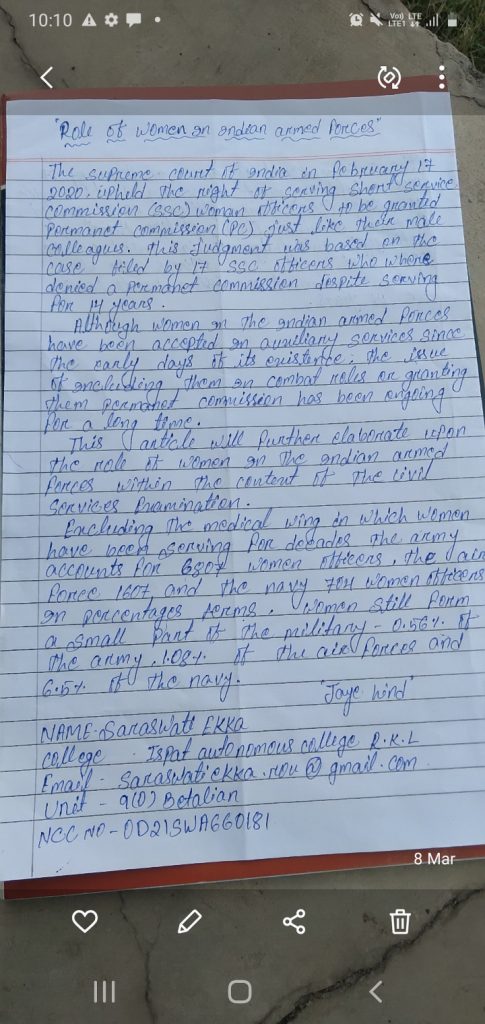 10:10
Vo)) LTE
LTE1
"Role of women in indian armed forces"
The supreme court of india in february 17
2020. upheld the right of serving short service
commission (SSC) woman officers to be granted
permanet commission (PC) just like their male
colleagues. This judgment was based on the
case filed by 17 SSC officers who where
denied a permanet commission despite serving
for 14 years.
Although women in the indian armed forces
have been accepted in auxiliary services since
the early days of its existence. the issue
of including them in combat roles or granting
them permanet commission has been ongoing
for a long time.
This article will further elaborate upon
the role of women in the indian armed
forces within the context of the civil
services Examination.
Excluding the medical wing in which women
have been serving for decades the army
accounts for 6807 women officers, the air
force 1607 and the navy 704 women officers
in percentages terms. women still form
a small part of the military - 0.56% of
the army, 1.08% of the air forces and
6.5% of the navy.
"Jaye hind"
NAME - Saraswati EKKa
college - Ispat autonomous college R.K.L
Email - Saraswatiekka.rou@gmail.com
Unit - 9(O) Betalian
NCC NO - OD21SWA660181
8 Mar